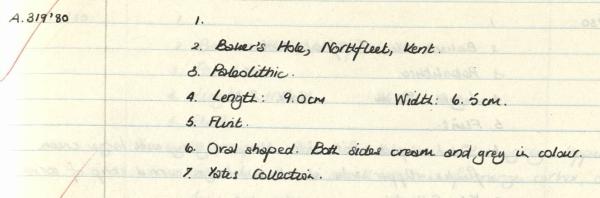 A.319'80
1.
2. Baker's Hole, Northfleet, Kent.
3. Paleolithic.
4. Length: 9.0cm Width: 6.5cm.
5. Flint.
6. Oval shaped. Both sides cream and grey in colour.
7. Yates Collection.